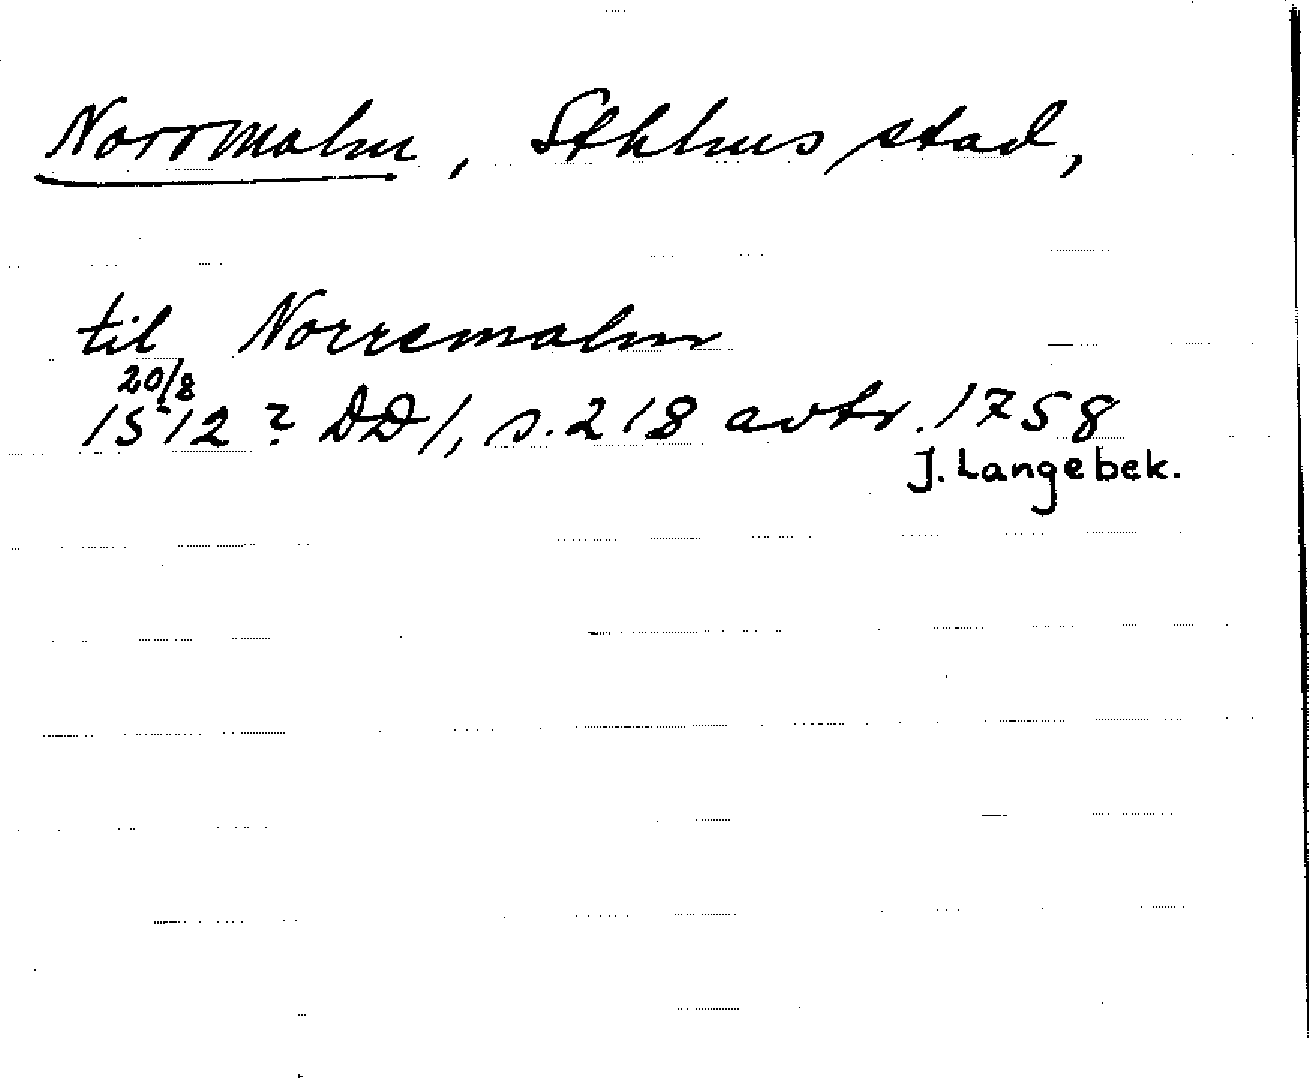 Norrmalm, Sthlms stad,
til Norremalm
20/8
1512? DD1, s. 218 avtr. 1758
J. Langebek.